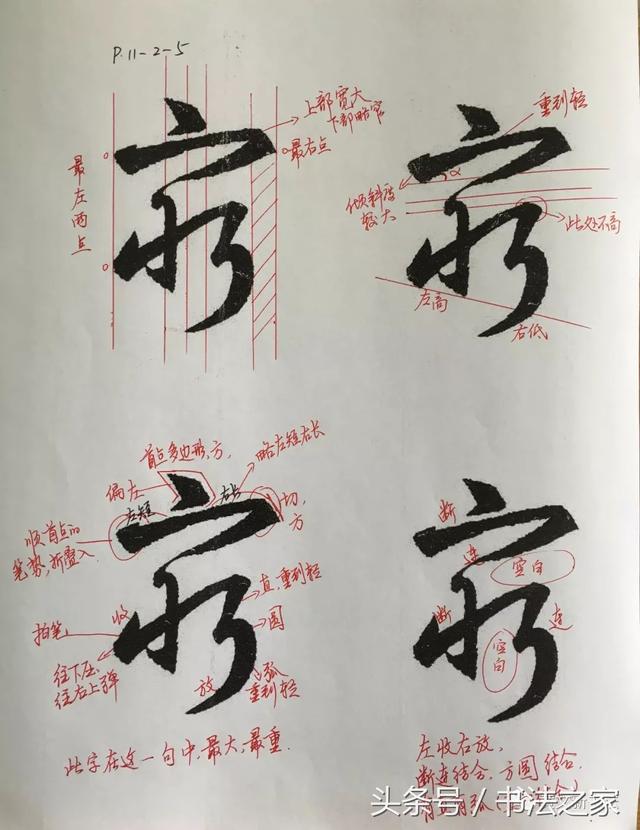 P.11-2-5
上部宽大
下部略窄
最右点
最左两点
重到轻
α
倾斜度
较大
此处不高
左高
右低
首点多边形,方
略左短右长
偏左
左短
右长
切,
方
顺首点的
笔势,折叠入
收
直,重到轻
拍笔
圆
往下压,
往右上弹
放
弧
重到轻
此字在这一句中,最大,最重.
断
连
空白
断
连
空白
左收右放,
断连结合,方圆结合,
头条号/书法之家